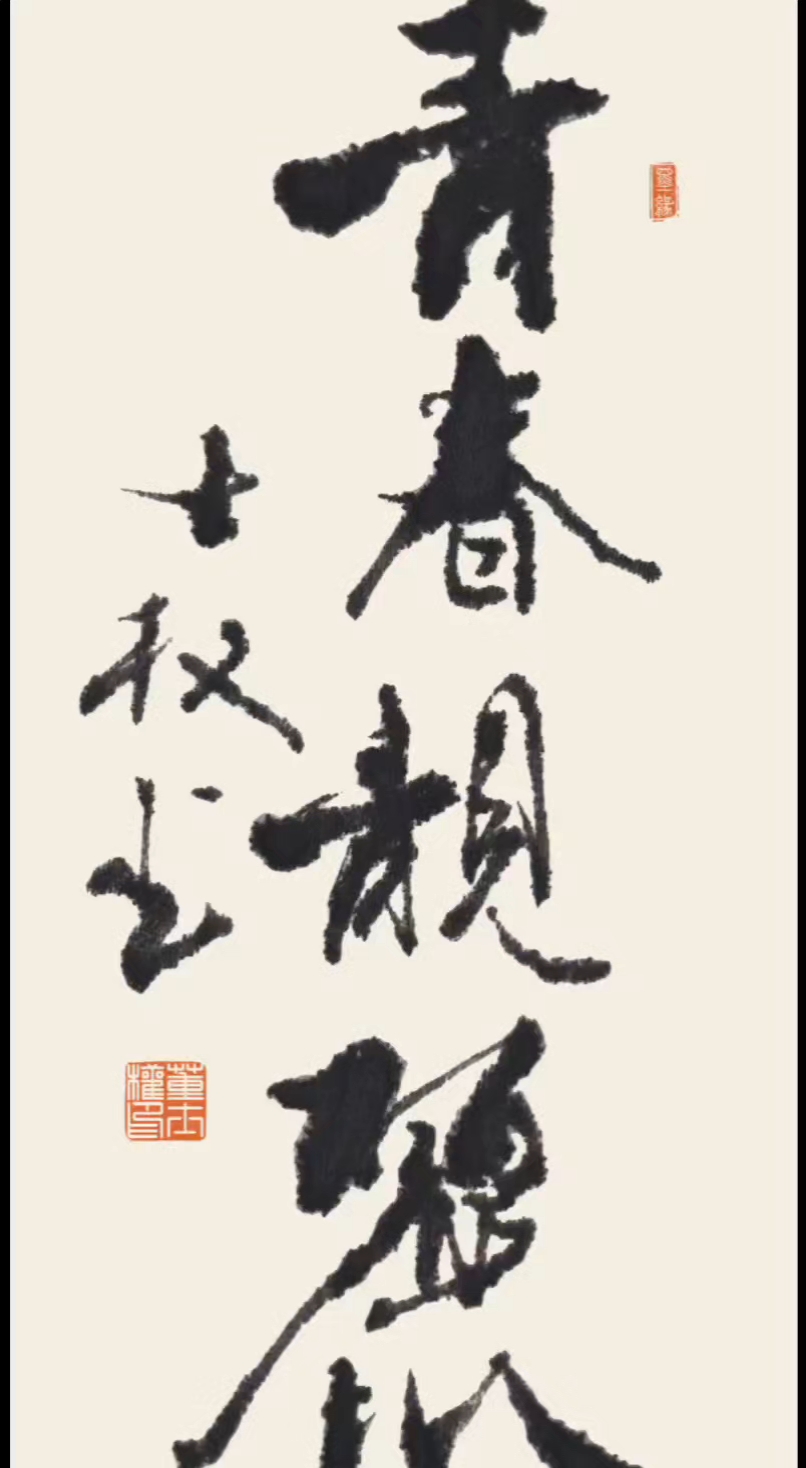 青春靚麗
士权书
董士權印